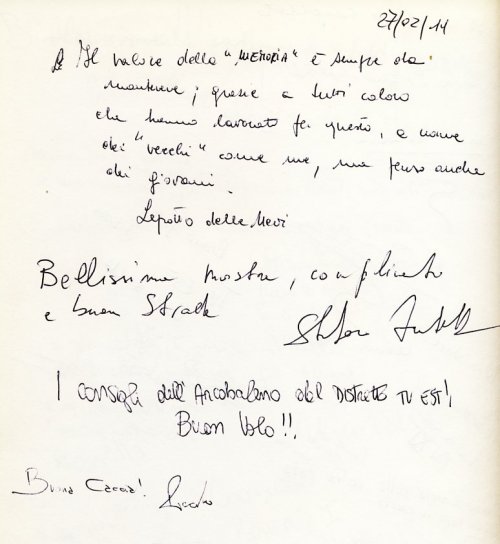 27/02/14
Il valore della "MEMORIA" è sempre da
mantenere; grazie a tutti coloro
che hanno lavorato per questo, a nome
dei "vecchi" come me, ma penso anche
dei giovani.
Lepotto delle Nevi
Bellissima mostra, complimenti
e buona Strada
I consigli dell'Arcobaleno del DISTRETTO TV EST!
Buon Volo!!
Buona Caccia!